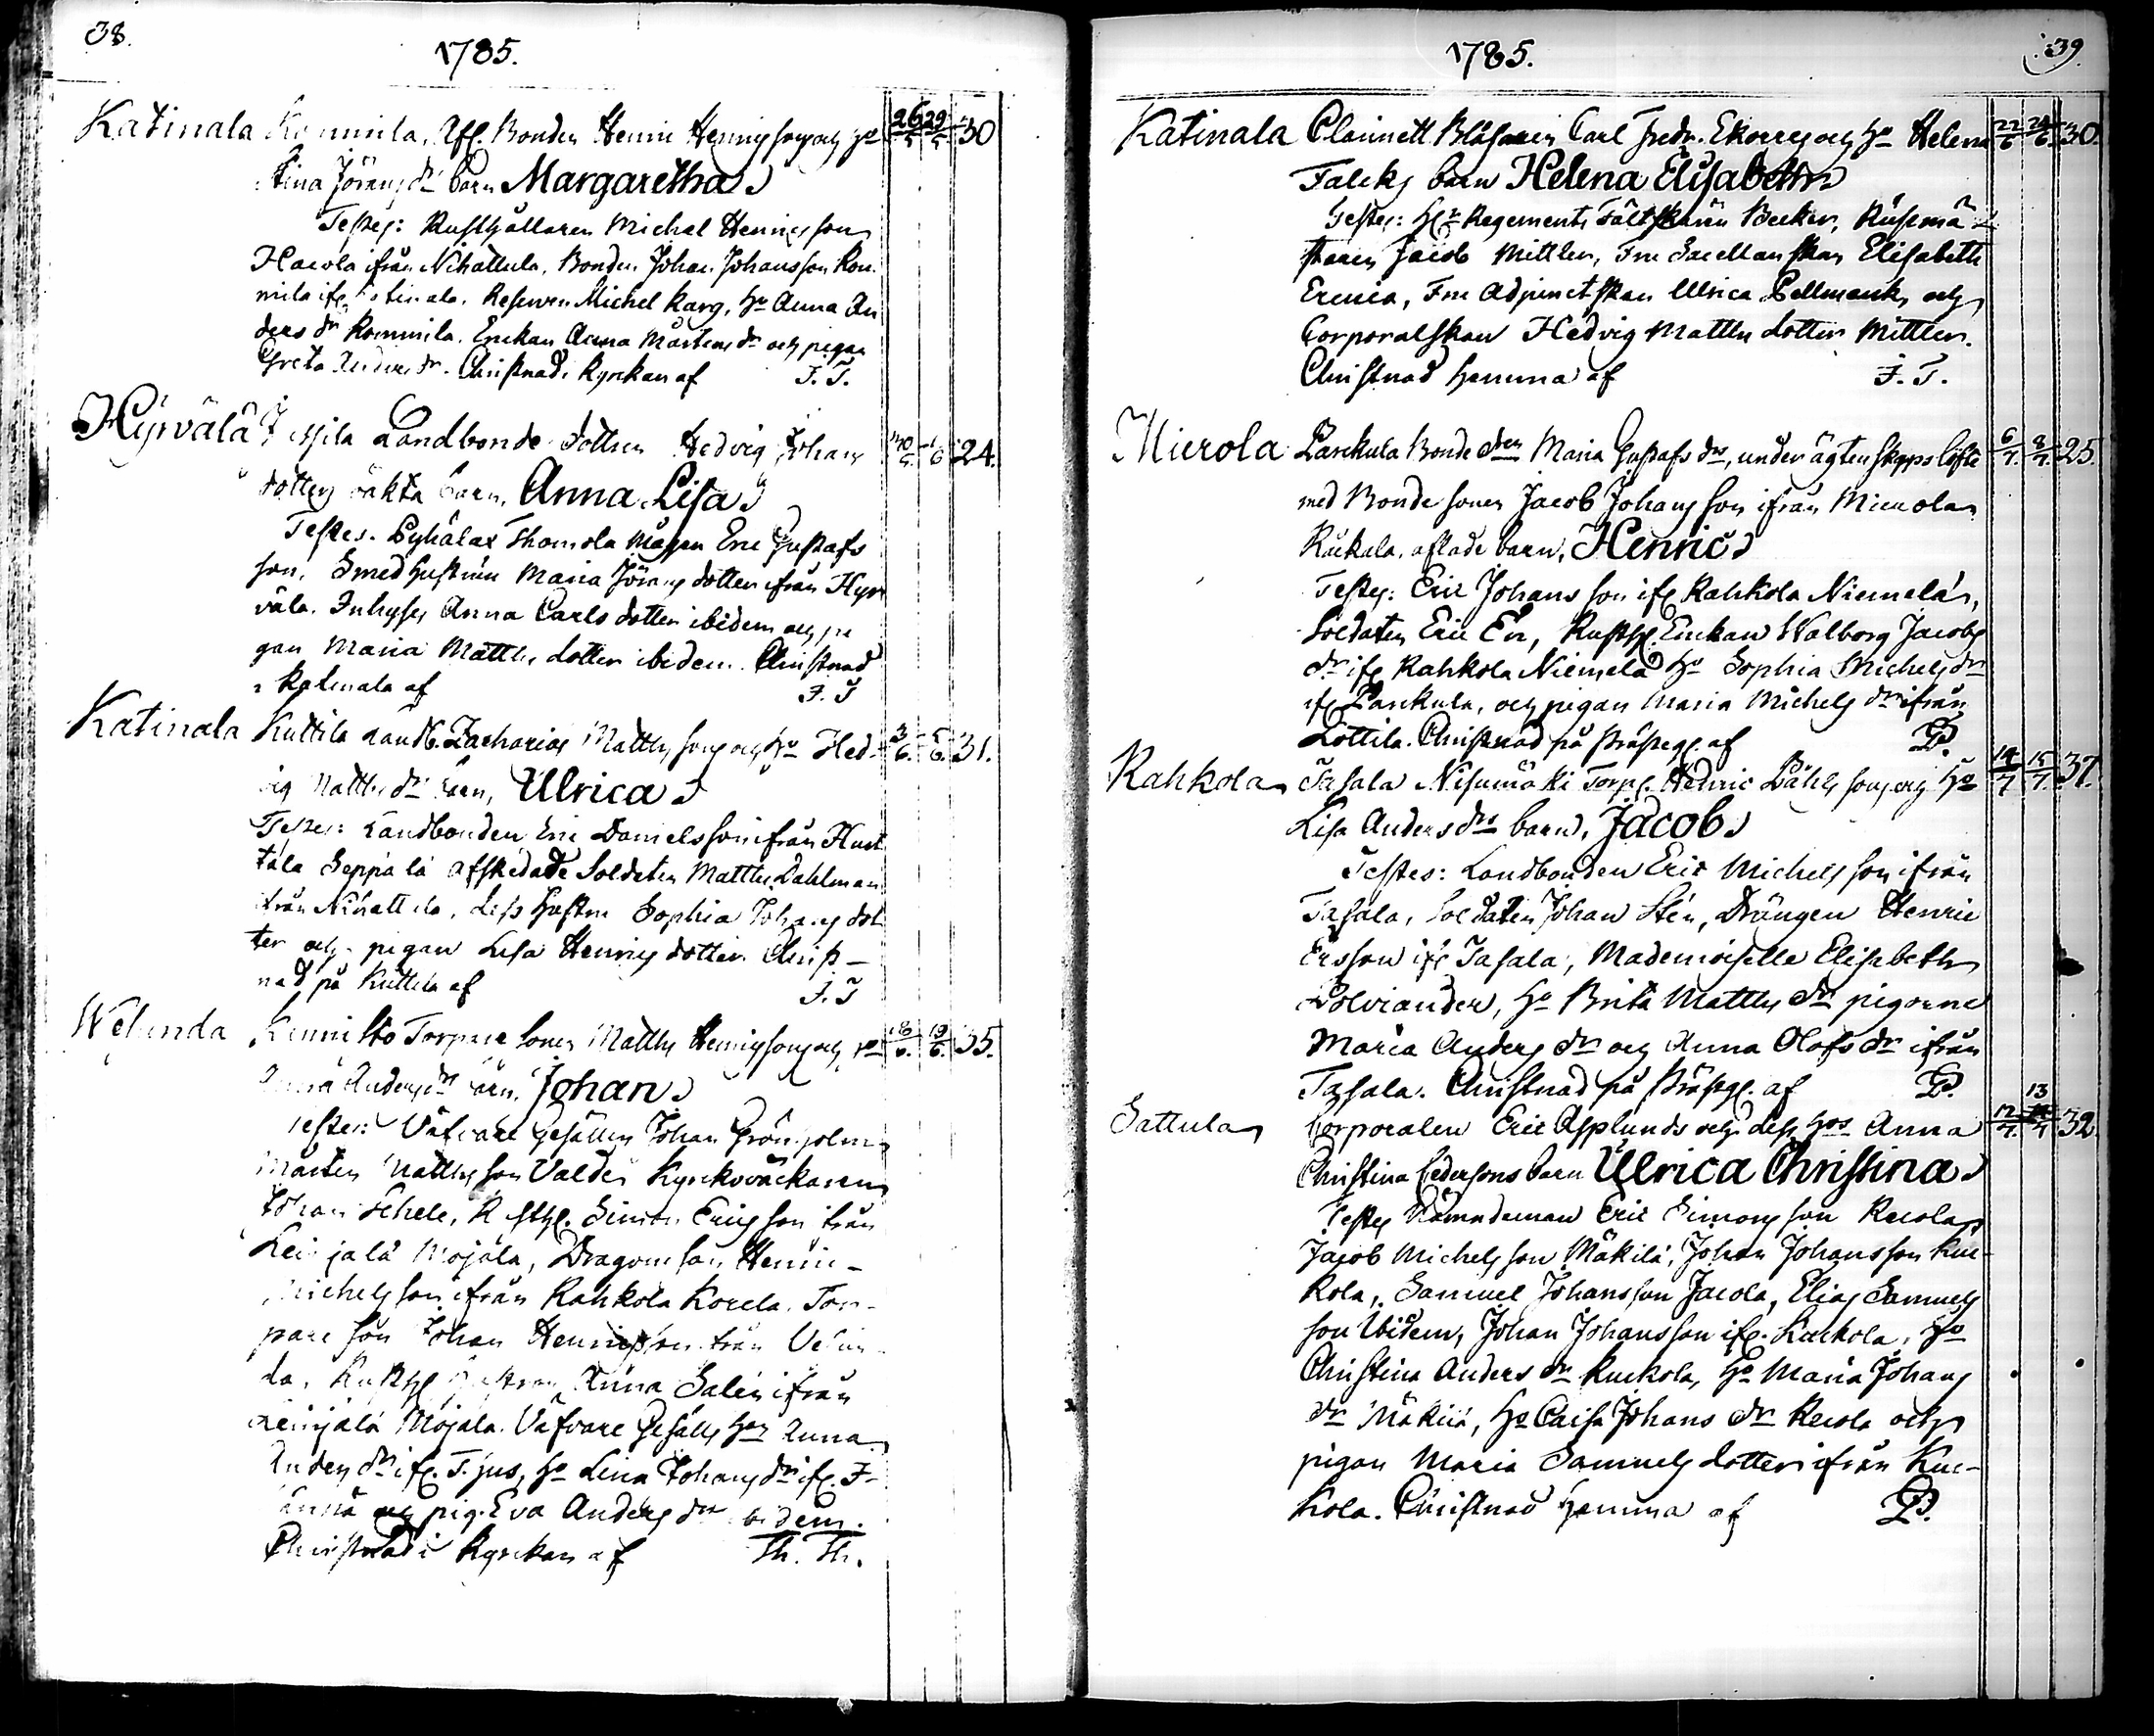 38.
1785.
Katinala Kommila, Afl. Bonden Henric Henricssons och H:o 26/5 29/5 30
Stina Jörans dr barn Margaretha
Testes: Rusthållaren Michel Henricsson
Haerola ifrån Nihattula, Bonden Johan Johansson Kom-
mila ifr. Katinala, Reserven Michel Karg, H:o Anna An
ders dr Kommila, Enckan Anna Mårtens dr och pigan
Greta Anders dr. Christnad i Kyrckan af J. T.
Hyrvälä Landbonde dottren Hedvig Johans 30/5 1/6 24.
dotters oäkta barn, Anna Lisa
Testes. Pyhälax Thomola Mågen Eric Gustafs
son, Smed hustrun Maria Jörans dotter ifrån Hyr
välä. Inhyses Anna Carls dotter ibidem och pi
gan Maria Matths dotter ibidem. Christnad
i Katinala af J. T
Katinala Kuttila Landb. Zacharias Matthssons och H:o Hed- 3/6. 5/6. 31.
vig Matths dr barn, Ulrica
Testes: Landbonden Eric Danielsson ifrån Hurt
tala Seppälä afskedade Soldaten Matths Dahlman
ifrån Nihattula, dess Hustru Sophia Johans dot
ter och pigan Lisa Henrics dotter. Christ-
nad på Kuttila af J. T
Wesunda Kennistö Torpare Sonen Matths Henricssons och H:o 18/6. 19/6. 35.
Anna Anders dr barn, Johan
Testes: Väfvare Gesällen Johan Grönholm
Mårten Mattsson Valdei Kyrckoväckaren
Johan Schele, Rusth. Simon Ericsson ifrån
Leinjälä Mojala, Dragon son Henric
Michelsson ifrån Rahkola Korela, Tor-
pare son Johan Henricsson ifrån Vesun
da, Rusth. Hustrun Anna Salin ifrån
Leinjälä Mojala. Väfvare Gesälls H:o Anna
Anders dr ifr. H:o Lena Johans dr ifr.
och pig. Eva Anders dr ibidem.
Christnad i Kyrckan af Th. Th.
39.
1785.
Katinala Clarinett Blåsaren Carl Fredr. Ekorres och H:o Helena 22/6 24/6. 30.
Falcks barn Helena Elisabeth
Testes: H:r Regements Fältskären Becker, Rüstmä-
staren Jacob Mittler, Fru Sacellanskan Elisabeth
Erenia, Fru Adjunctskan Ulrica Polimank och
Corporalskan Hedvig Matths dotter Mittler.
Christnad hemma af J. T.
Mierola Parckula Bonde dren Maria Gustafs drs, under ägtenskaps löfte 6/7. 8/7. 25.
med Bonde sonen Jacob Johansson ifrån Mierola
Ruckala, aflade barn, Henric
Testes: Eric Johansson ifr Rahkola Niemelä,
Soldaten Eric En, Rusth. Enckan Walborg Jacobs
dr ifr Rahkola Niemelä H:o Sophia Michels dr
ifr Parckula, och pigan Maria Michels dr ifrån
Lottila. Christnad på Prästeg. af P.
Rahkola Tasala Nisumäki Torp. Henric Påhlssons och H:o 14/7 15/7. 37.
Lisa Anders drs barn, Jacob
Testes: Landbonden Eric Michelsson ifrån
Tasala, Soldaten Johan Stén, Drängen Henric
Ersson ifr Tasala, Mademoiselle Elisabeth
Polviander, H:o Brita Matths dr pigorna
Maria Anders dr och Anna Olofs dr ifrån
Tasala. Christnad på Prästg. af P.
Sattula Corporalen Eric Asplunds och dess H:os Anna 12/7. 13 14/7 32.
Christina Pedersons barn Ulrica Christina
Testes Nämndeman Eric Simonsson Recola
Jacob Michelsson Mäkilä, Johan Johansson Kuc-
kola, Samuel Johansson Jacola, Elias Samuels
son Ibidem, Johan Johansson ifr. Kuckola, H:o
Christina Anders dr Kuckola, H:o Maria Johans
dr Mäkilä, H:o Caisa Johans dr Recola och
pigan Maria Samuels dotter ifrån Kuc-
kola. Christnad hemma af P.